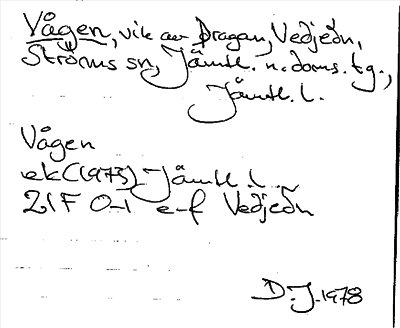 Vågen, vik av Dragan, Vedjeön,
Ströms sn, Jämtl. n. doms. tg.,
Jämtl. l.
Vågen
ekC(1973) Jämtl. l.
21F 0-1 e-f Vedjeön
D.J. 1978